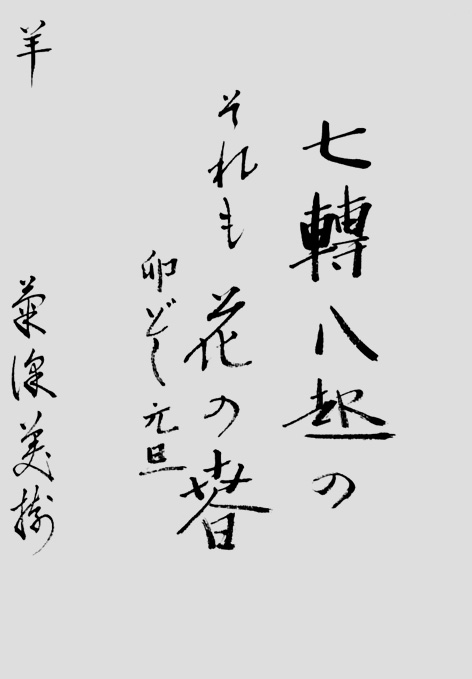 七轉八起の
それも花の春
卯どし元旦
羊